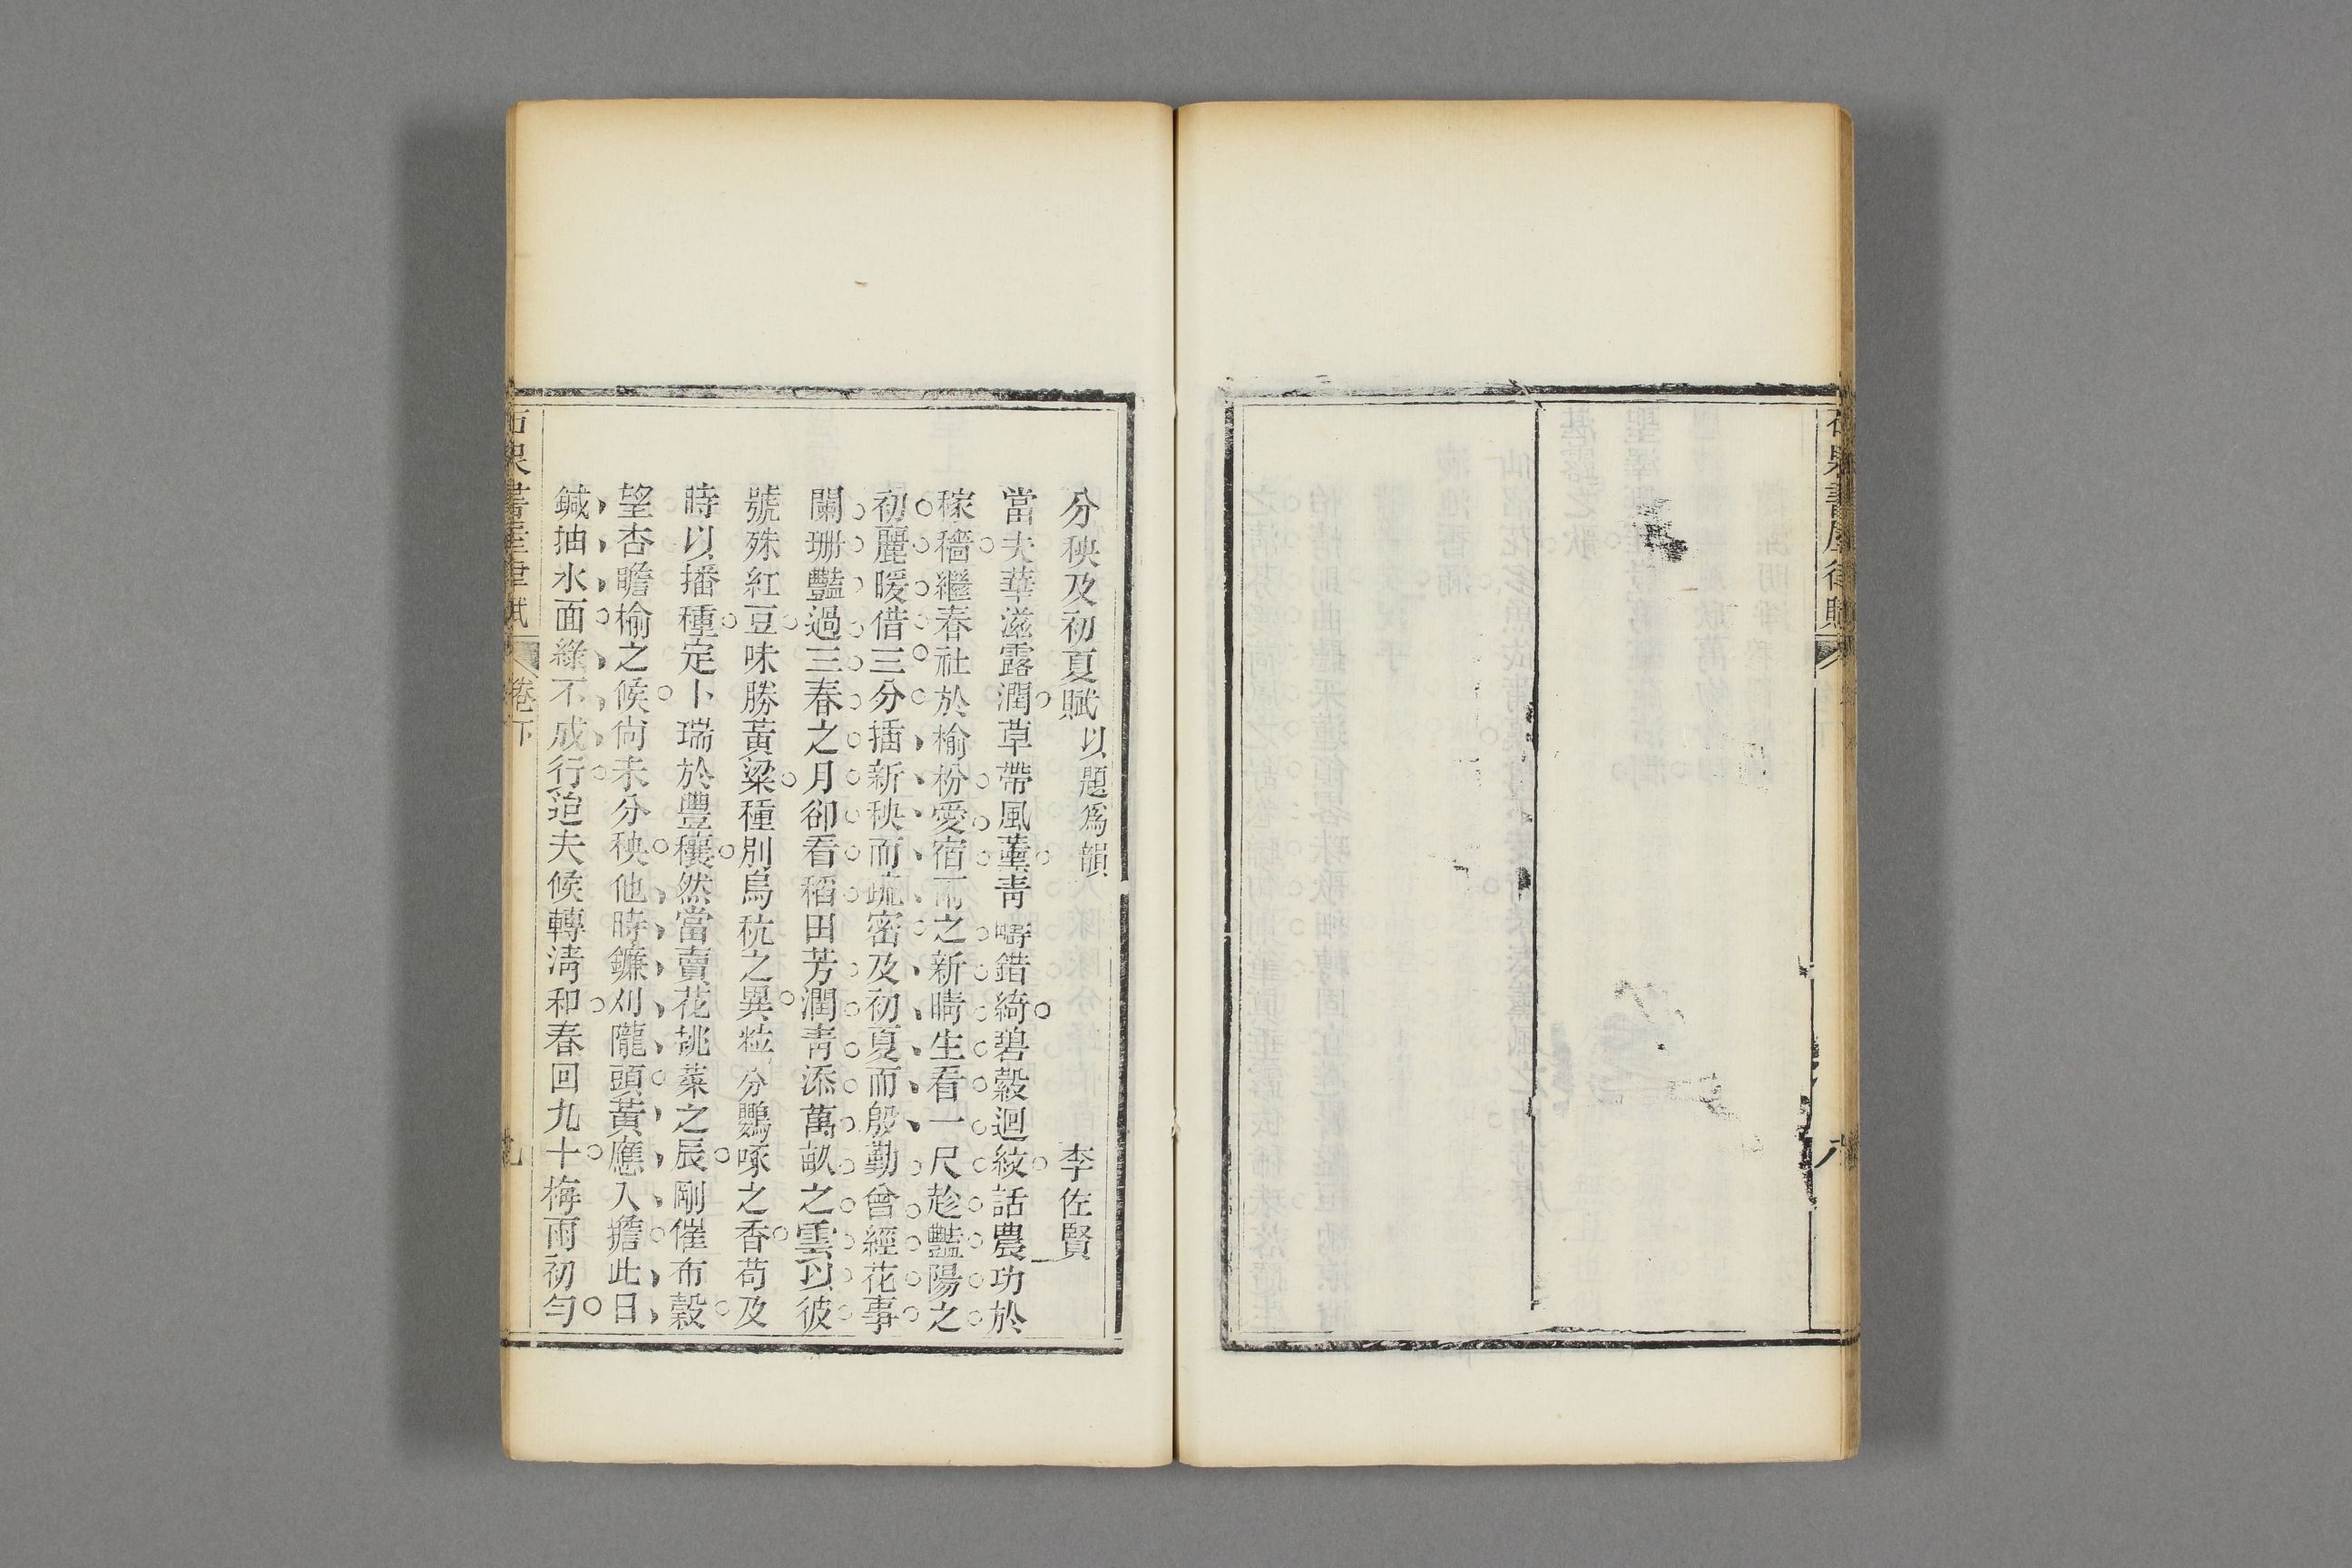 石泉書屋律賦
分秧及初夏賦以題爲韻 李佐賢
當夫華滋露潤草帶風薰青疇錯綺碧縠迴紋話農功於
稼穡繼春社於榆枌愛宿雨之新晴生看一尺趁豔陽之
初麗暖借三分插新秧而疏密及初夏而殷勤曾經花事
闌珊豔過三春之月卻看稻田芳潤靑添萬畝之雲以彼
號殊紅豆味勝黃粱種別烏秔之異粒分鸚啄之香茍及
時以播種定卜瑞於豐穰然當賣花挑菜之辰剛催布穀
望杏瞻榆之候尙未分秧他時鐮刈隴頭黃應入擔此日
鍼抽水面綠不成行迨夫候轉淸和春回九十梅雨初勻
石泉書屋律賦 卷下 九